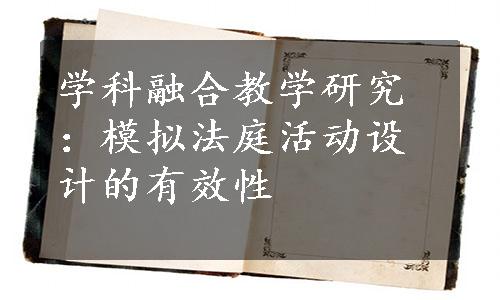 学科融合教学研究
：模拟法庭活动设
计的有效性